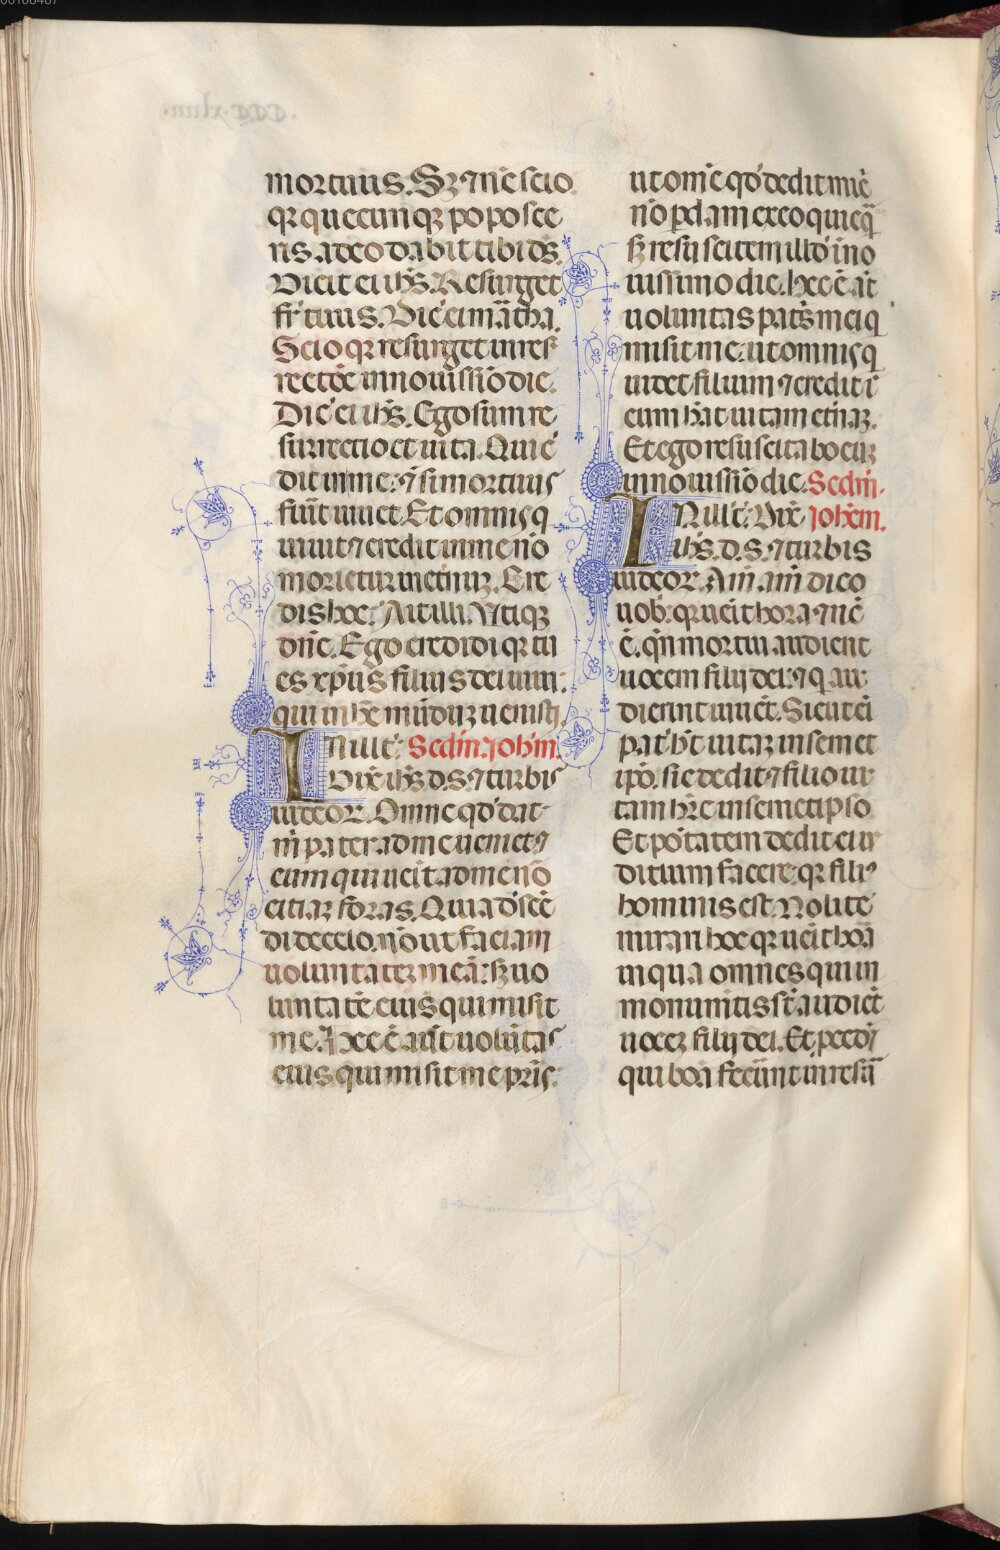 mortuus. Sꝫ ⁊ nc̄ scio
qꝛ quecunqꝫ poposce
ris a deo dabit tibi ds̄.
Dicit ei ihs̄. Resurget
fr̄ tuus. Dic̄ ei martha.
Scio qꝛ resurget in resꝰ
rectōe in nouissīo die.
Dic̄ ei ihs̄. Ego sum re
surrectio et uita. Qui c̄
dit in me: ⁊ si mortuus
fūit uiuet. Et omnis q
uiuit ⁊ credit in me nō
morietur in et̄nuꝫ. Cre
dis hoc? Ait illi. Vtiqꝫ
dn̄e. Ego credidi qꝛ tu
es xp̄us filius dei uiui:
qui in hc̄ mūduꝫ uenisti.
In ill t̄: Scd̄m. Joh̄m.
Dix̄ ihs̄. d. s. ⁊ turbis
iudeoꝝ. Omne qd̓ dat
m̄ pater ad me ueniet: ⁊
eum qui ueit ad me nō
eiciaꝫ foras. Quia d̓scē
di de celo. nō ut faciam
uoluntateꝫ meā: sꝫ uo
luntatē eius qui misit
me. Hec ē aūt uolūtas
eius qui misit me pr̄is:
ut om̄e qd̓ dedit mic̄
nō pdam ex eo quicq̄
sꝫ resuscitem illd̓ ī no
uissimo die. hec ē āt
uoluntas pat̓s mei q
misit me: ut omnis q
uidet filium ⁊ credit ī
eum h̄at uitam et̄naꝫ.
Et ego resuscitabo euꝫ
in nouissīo die. Scd̄m.
In ill t̄. Dix̄ Joh̄em.
ihs̄. d. s. ⁊ turbis
iudeoꝝ. Am̄. am̄ dico
uob̓. qꝛ ueīt hora ⁊ nc̄
ē. qn̄ mortui audient
uocem filij dei: ⁊ q au
dierint uiuēt. Sicut ei
pat̓ hꝫ uitaꝫ in semet
ip̄o. sic dedit ⁊ filio ui
tam hr̄e in semetipso
Et pōtatem dedit ei iu
ditium facere: qꝛ filiꝰ
hominis est. Nolite
mirari hoc qꝛ ueīt hora
in qua omnes qui in
monumtis st̄ audiēt
uoceꝫ filij dei. Et pcedn̄t
qui bona fecerūt in resur